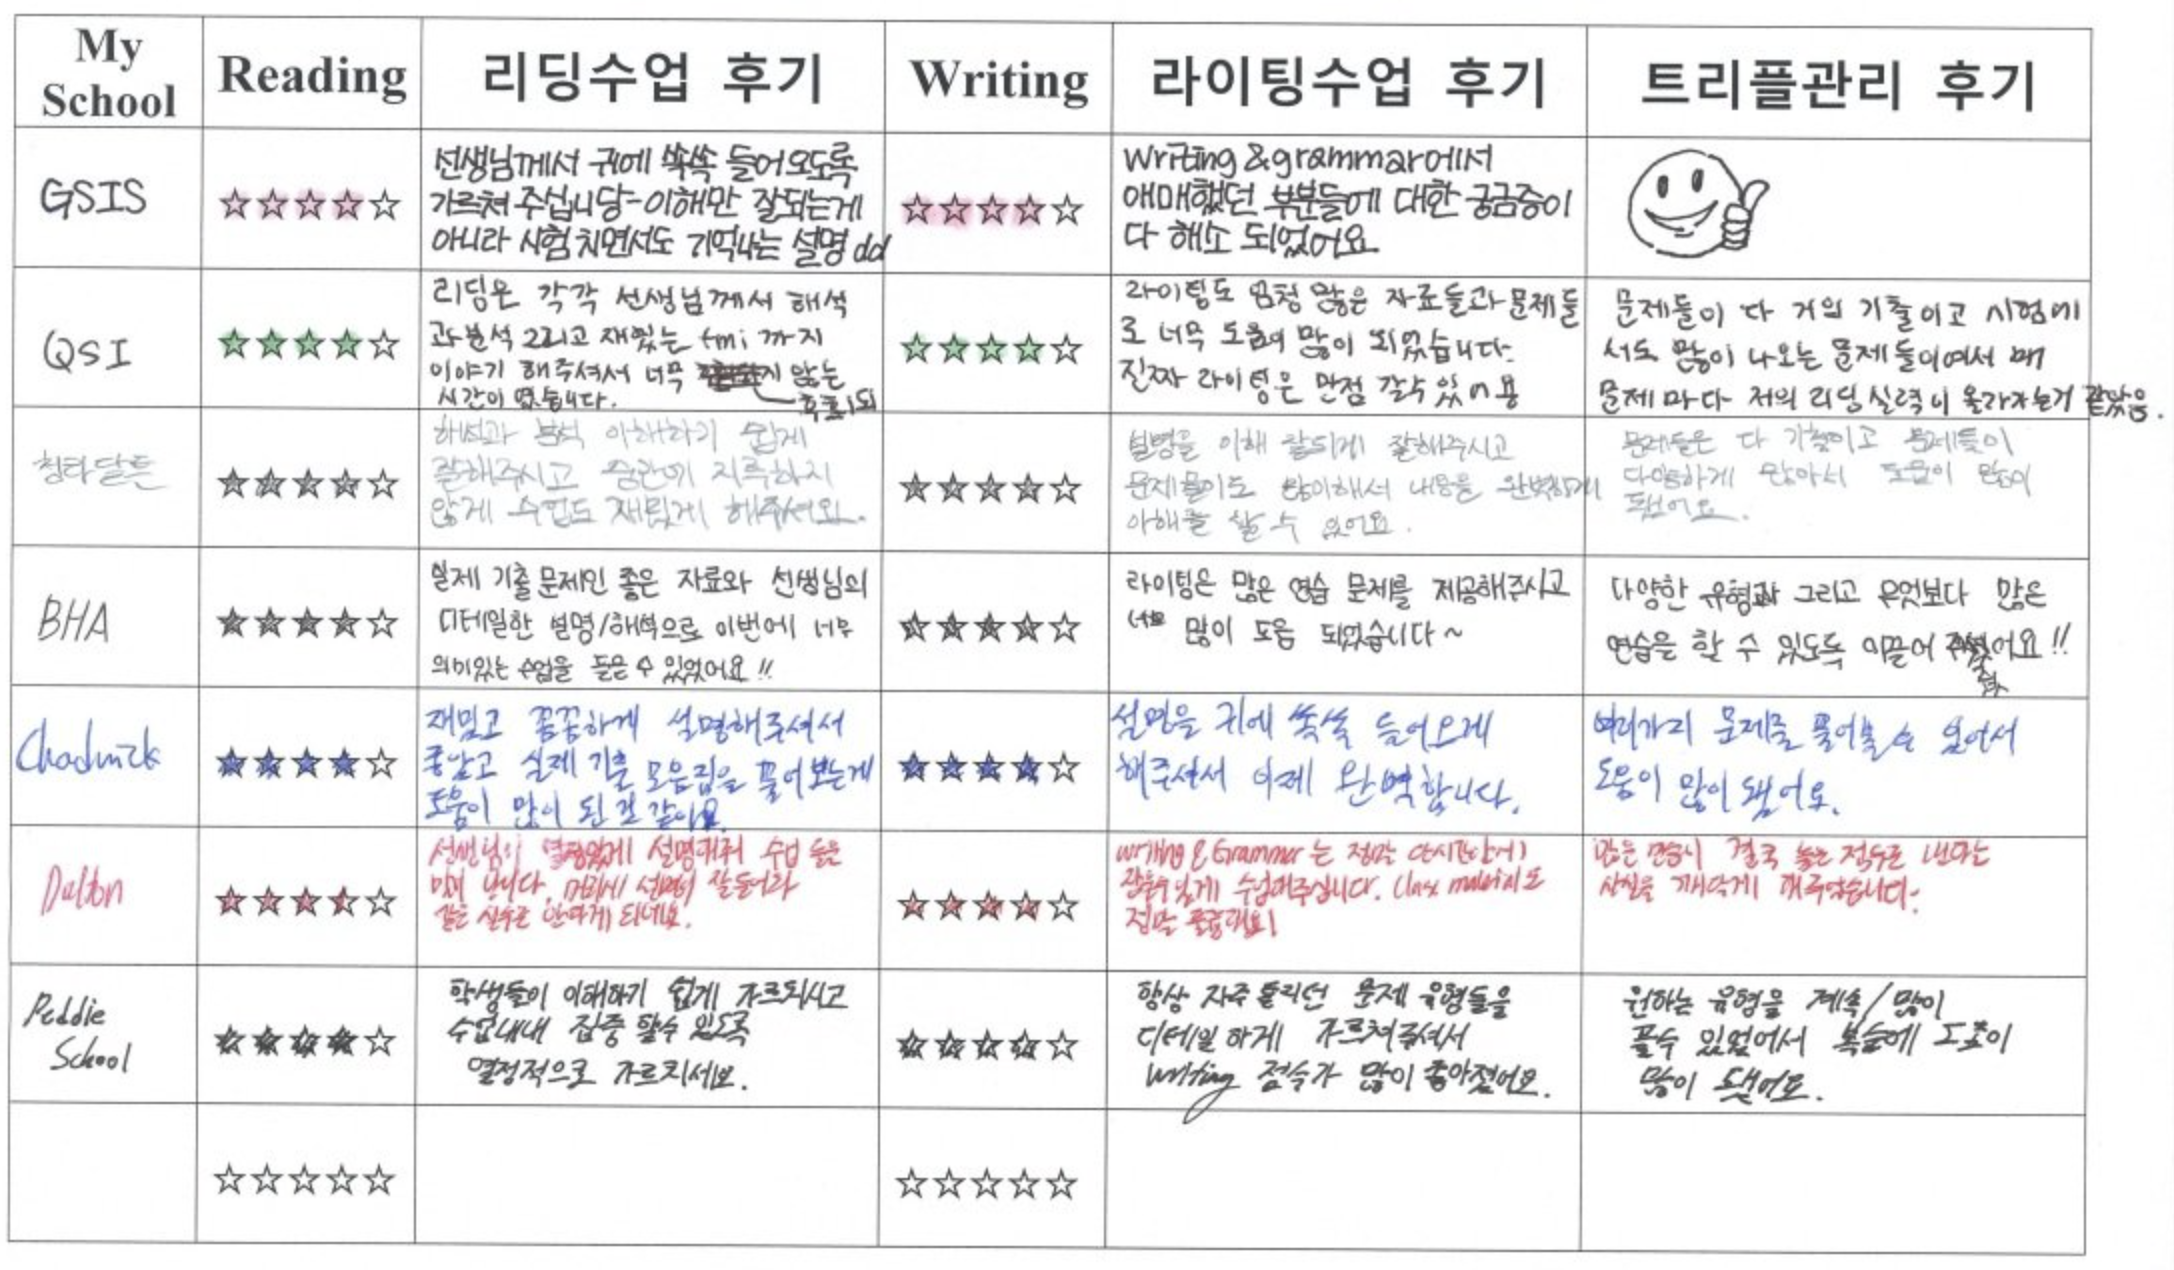 My School
Reading
리딩수업 후기
Writing
라이팅수업 후기
트리플관리 후기
GSIS
선생님께서 귀에 쏙쏙 들어오도록
가르쳐 주십니당-이해만 잘되는게
아니라 시험 치면서도 기억나는 설명 dd
Writing & grammar에서
애매했던 부분들에 대한 궁금증이
다 해소 되었어요
QSI
리딩은 각각 선생님께서 해석
과 분석 그리고 재밌는 tmi 까지
이야기 해주셔서 너무 않는
시간이 였습니다.
라이팅도 엄청 많은 자료들과 문제들
로 너무 도움이 많이 되었습니다.
진짜 라이팅은 만점 갈수 있
문제들이 다 거의 기출이고 시험에
서도 많이 나오는 문제들이여서 매
문제 마다 저의 리딩 실력이 올라가는거 같았음.
청라달튼
해석과 분석 이해하기 쉽게
잘해주시고 지루하지
않게 수업도 재밌게 해주셔요.
설명을 이해 잘되게 잘해주시고
문제풀이도 많이해서 내용을 완벽하게
이해를 할 수 있어요.
문제들은 다 기출이고 문제들이
다양하게 많아서 도움이 많이
됐어요.
BHA
실제 기출 문제인 좋은 자료와 선생님의
디테일한 설명/해석으로 이번에 너무
의미있는 수업을 들을 수 있었어요!!
라이팅은 많은 연습 문제를 제공해주시고
너무 많이 도움 되었습니다~
다양한 유형과 그리고 무엇보다 많은
연습을 할 수 있도록 이끌어 주셨어요!!
Chadwick
재밌고 꼼꼼하게 설명해주셔서
좋았고 실제 기출 모음집을 풀어보는게
도움이 많이 된 것 같아요.
설명을 귀에 쏙쏙 들어오게
해주셔서 이제 완벽합니다.
여러가지 문제를 풀어볼 수 있어서
도움이 많이 됐어요.
Dalton
선생님이 열정있게 설명해줘 수업 들을
맛이 납니다. 머리에 설명이 잘들어라
같은 실수를 안하게 되네요.
writing & Grammar 는 정말 단시간안에
수업해주십니다. Class material도
정말 훌륭해요!
많은 연습이 결국 높은 점수를 낸다는
사실을 깨닫게 해주었습니다.
Peddie
School
학생들이 이해하기 쉽게 가르치시고
수업내내 집중 할수 있도록
열정적으로 가르치세요.
항상 자주 틀리던 문제 유형들을
디테일 하게 가르쳐주셔서
writing 점수가 많이 좋아졌어요.
원하는 유형을 계속/많이
풀수 있었어서 복습에 도움이
많이 됐어요.